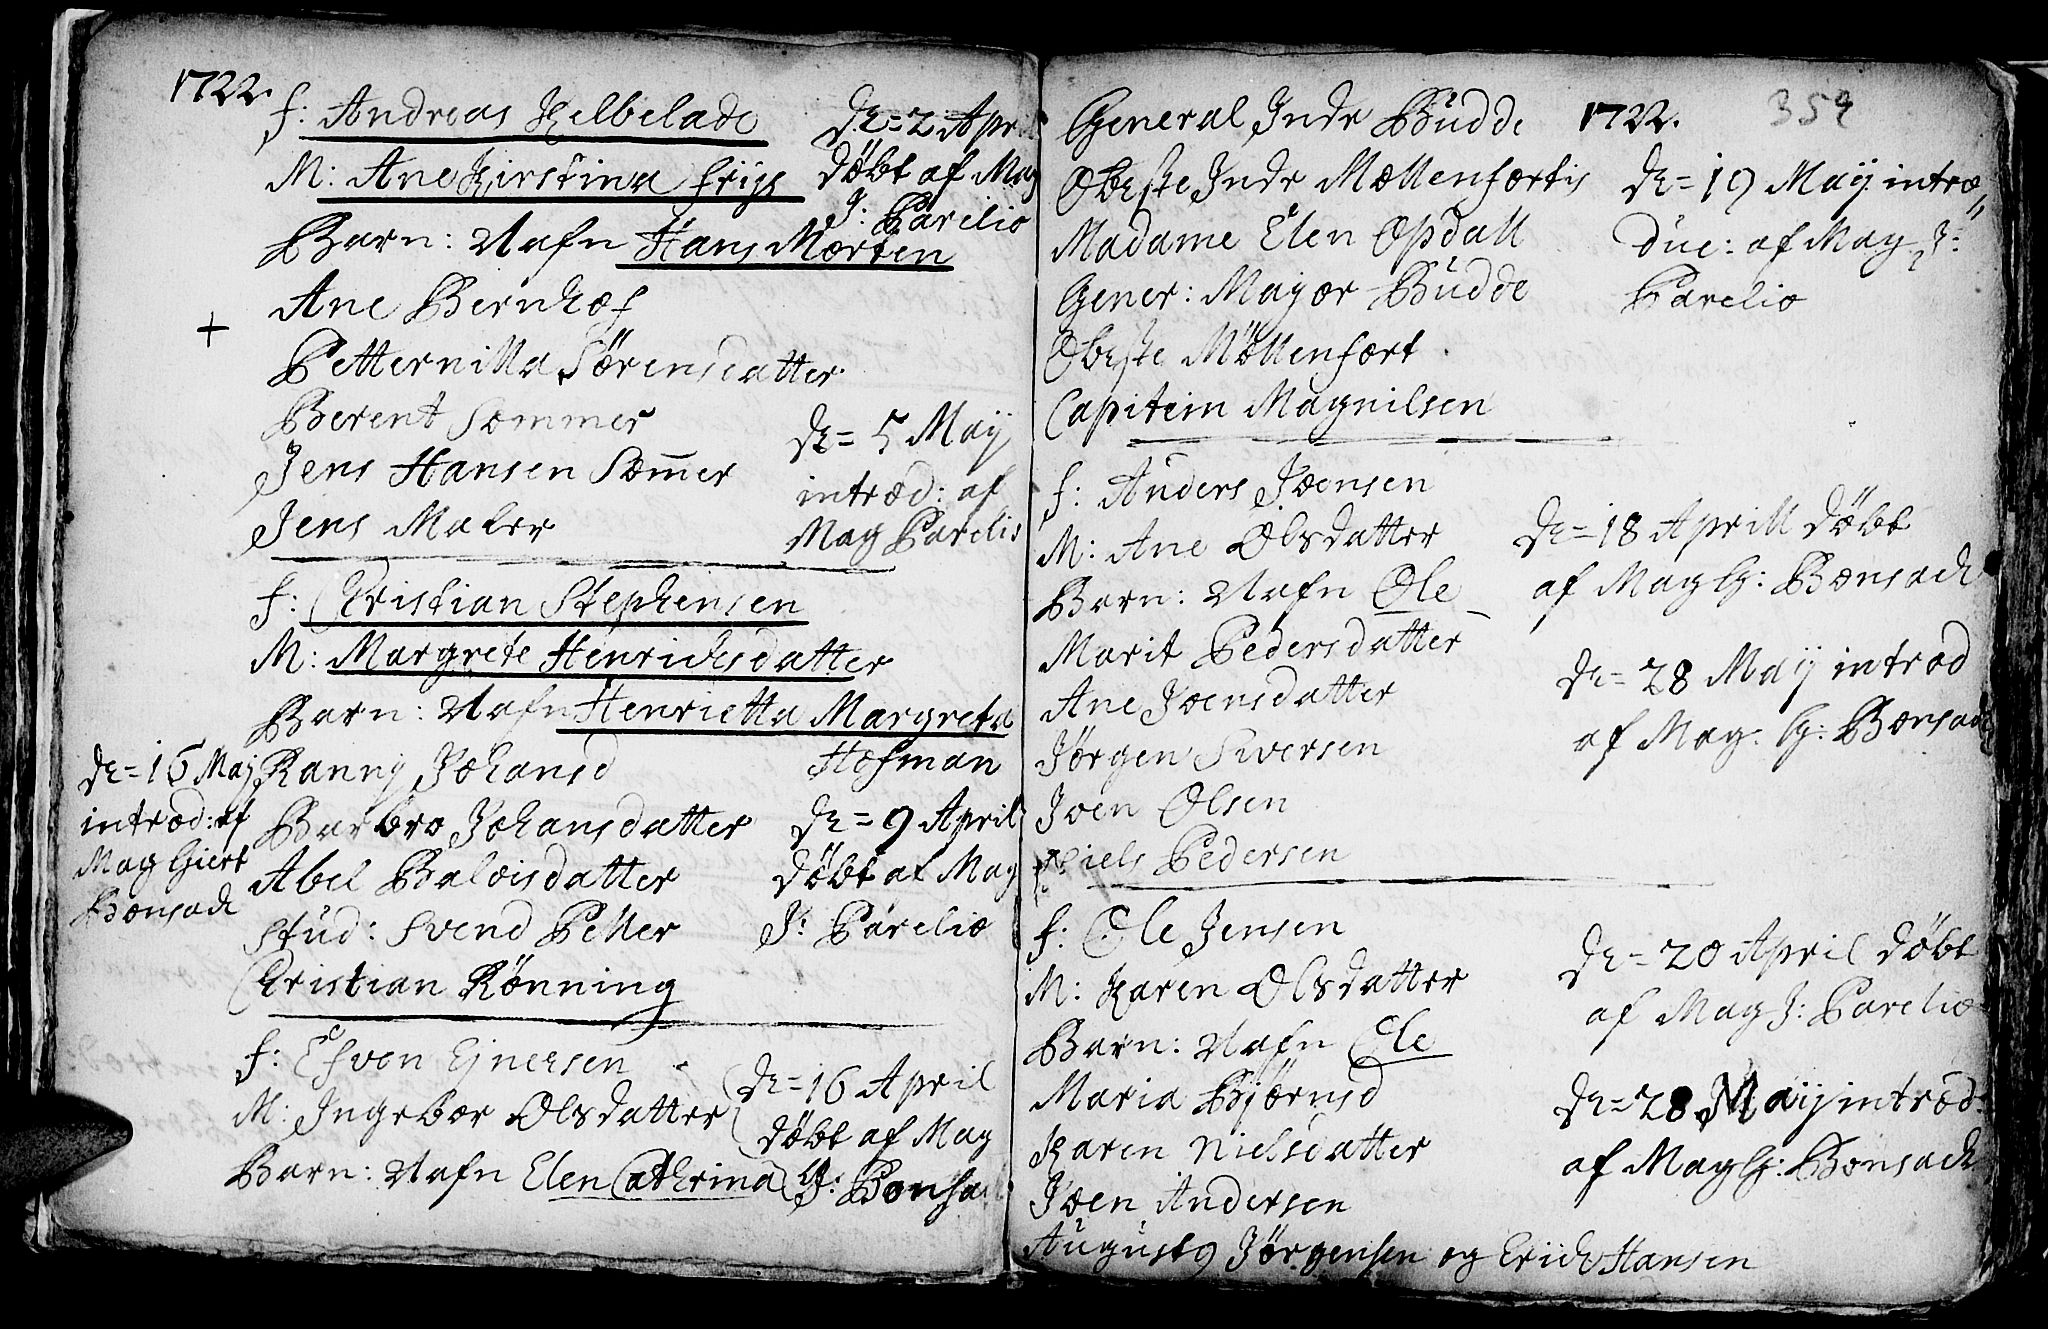 1722.
f: Andreas Kelbelade
M: Ane Kirstina friis
Barn: Nafn Hans Morten
Ane Bernhof
+
Petternilla Sörensdatter
Berent Sommer
Jens Hansen Som̅er
Jens Maler
De= 2 April
döbt af Mag
J: Parelio
De= 5 Maij
introd: af
Mag Parelio
f: Christian Stephensen
M: Margrete Henrichsdatter
Barn: Nafn Henrietta Margreta
Hofman
Ranny Johansd
Barbro Johansdatter
Abel Baltisdatter
Stud: Svend Petter
Christian Rönning
De= 16 Maj
introd: af
Mag Giert
Bonsach
De= 9 April
döbt af Mag
J: Parelio
f: Esven Ejnersen
M: Ingebor Olsdatter
Barn: Nafn Elen Cathrina
De= 16 April
döbt af Mag
G: Bonsach
1722.
359
General Inde Budde
Obeste Inde Mollenfortis
Madame Elen Opdall
Gener: Major Budde
Obeste Möllenfort
Capitein Magnilsen
De= 19 Maij intro
duc: af Mag J:
Parelio
f: Anders Joensen
M: Ane Olsdatter
Barn: Nafn Ole
Marit Pedersdatter
Ane Joensdatter
Jörgen Siversen
Joen Olsen
Niels Pedersen
De= 18 Aprill döbt
af Mag G: Bonsach
De= 28 Maij introd
af Mag: G: Bonsach
f: Ole Jensen
M: Karen Olsdatter
Barn: Nafn Ole
Maria Björnsd
Karen Nielsdatter
Joen Andersen
Augustg Jörgensen og Erich Hansen
De= 20 April döbt
af Mag J: Parelio
De= 28 Maij introd:
af Mag G: Bonsach